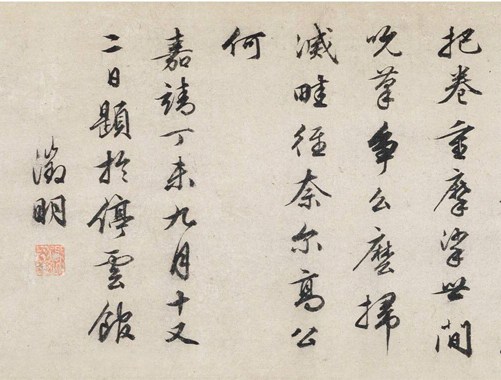 把卷重摩挲世間
吮筆爭么麼掃
滅畦徑奈尔高公
何
嘉靖丁未九月十又
二日題於停雲館
徵明